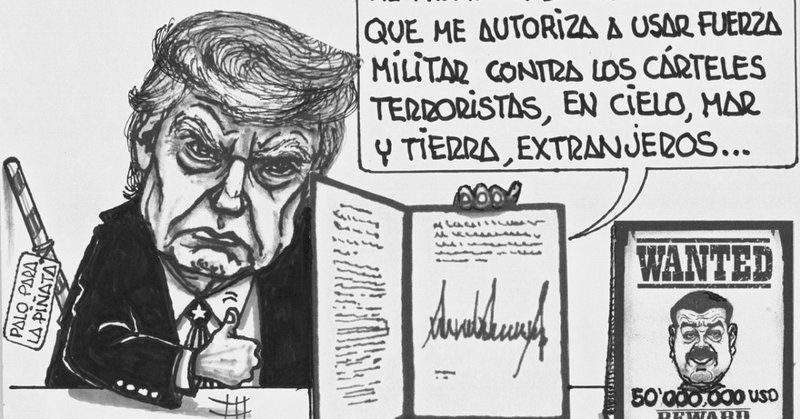 QUE ME AUTORIZA A USAR FUERZA
MILITAR CONTRA LOS CÁRTELES
TERRORISTAS, EN CIELO, MAR
Y TIERRA, EXTRANJEROS...
PALO PARA
LA PIÑATA
WANTED
50'000,000 USD
REWARD